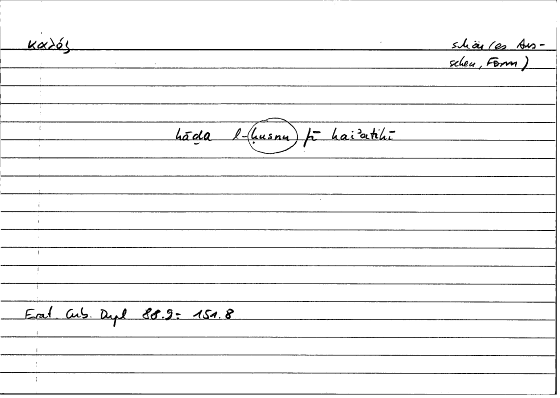 καλός
schön (es Aus-
sehen, Form)
hāḏa l-ḥusnu fī haiʾatihī
Erat. Cub. Dupl 88.9 = 151.8